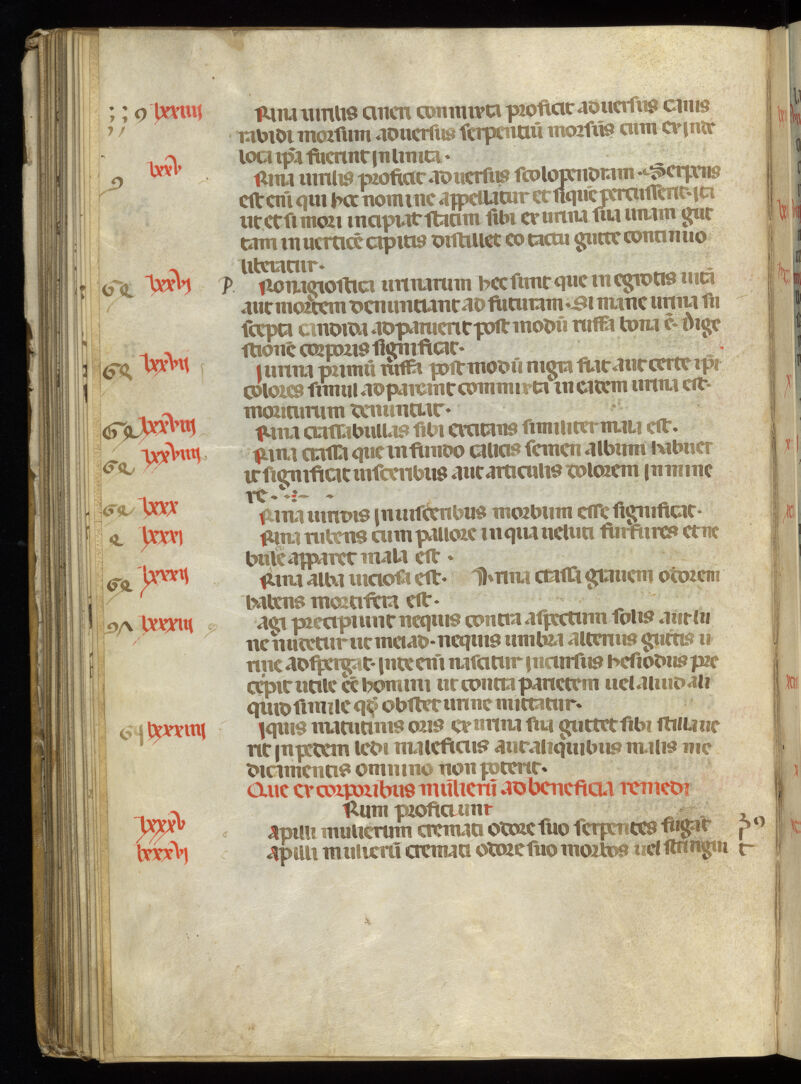 lxxiiii Rina uirilis cineri conmixta proficit aduersus canis
rabidi morsum aduersus serpentiũ morsũs cum ex inde
loca ip̃a fuerint inlinita.
lxxv Rina uirilis proficit aduersus scolopendram. Serpens
est eñi qui hoc nomine appellatur et siquē percusserit. ita
ut et si mori incipiat statim sibi ex urina sua unam gut
tam in uerticē capitis distillet eo tactu gutte continuo
liberatur.
lxxvi P. Ronagiostici urinarum hec sunt que in egrotis uitā
aut mortem denuntiant ad futuram. Si mane urina su
scepta candida adparuerit post modũ ruffa bona ē. dige
stionē corporis significat.
lxxvii i urina primũ ruffa post modũ nigra fiat aut certe ip̃i
colores simul adpareant conmixti in eadem urina est.
moriturum denuntiat.
lxxviii Rina crassa bullas sibi excitans similiter mala est.
lxxviiii Rina crassa que in fundo calicis semen album habuer
it significat insceribus aut articulis dolorem inmine
re.
lxxx Rina uiridis inuisceribus morbum esse significat.
lxxxi Rina rubens cum pallore in qua ueluti furfures et ne
bule apparet mala est.
lxxxii Rina alba uiciosa est. Urina crassa grauem odorem
habens mortifera est.
lxxxiii agi precipiunt nequis contra aspectum solis aut lu
ne nudetur ut meiad. nequis umbra alterius guttis u
rine adspergat. inde eñi nascitur incursus hesiodus pre
cepit utile eē homini ut contra parietem uel aliud ali
quid simile qđ obstet urine mittatur.
lxxxiiii iquis matutinis oris ex urina sua guttet sibi stillaue
rit in pedem ledi maleficiis aut aliquibus malis me
dicamentis omnino non poterit.
Que ex corporibus mulierũ ad beneficia remedi
Rum proficiunt
lxxxv apilli mulierum cremati odore suo serpentes fugat
lxxxvi apilli mulierũ cremati odore suo morbos uel stringui